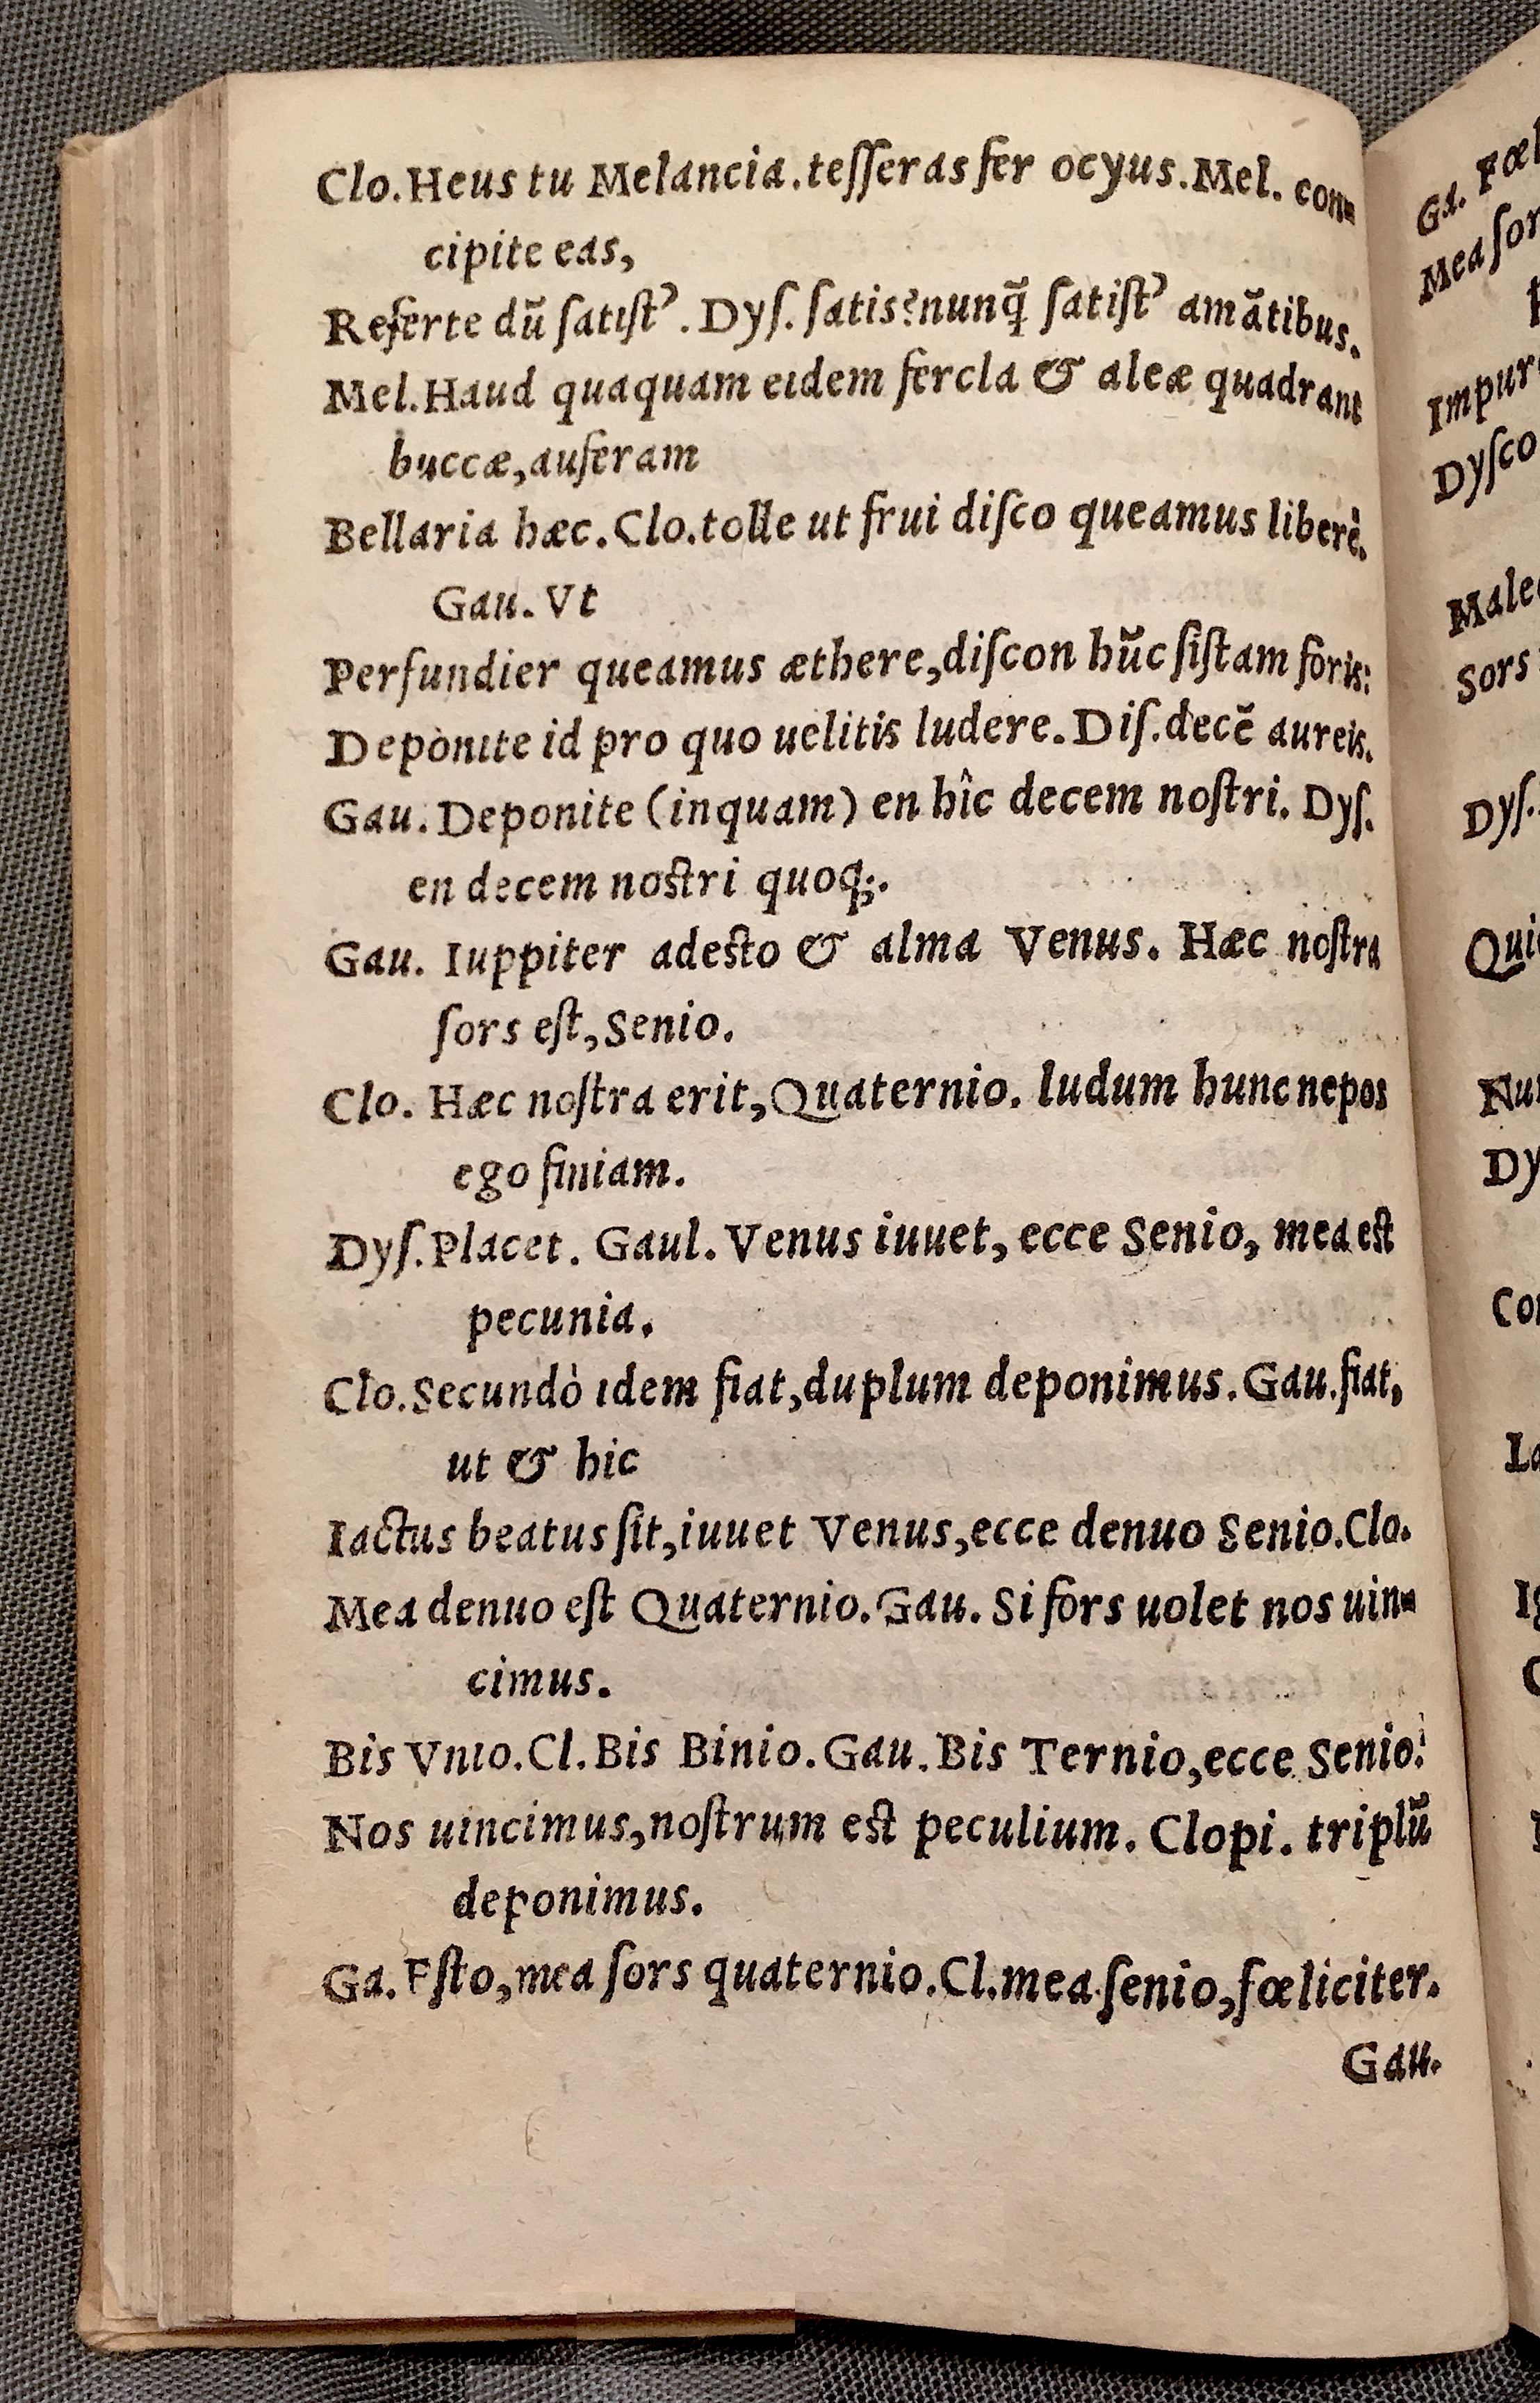 Clo.Heus tu Melancia.teſſeras fer ocyus.Mel. con-
cipite eas,
Referte dū ſatiſtꝰ. Dyſ. ſatis?nunq̃ ſatiſtꝰ amãtibus.
Mel.Haud quaquam eidem fercla & aleæ quadrant
buccæ,auferam
Bellaria hæc.Clo.tolle ut frui diſco queamus liberè.
Gau. Vt
Perfundier queamus æthere,diſcon hūc ſiſtam foris:
Deponite id pro quo uelitis ludere.Diſ.decē aureis.
Gau.Deponite (inquam) en hîc decem noſtri. Dyſ.
en decem noſtri quoq;.
Gau. Iuppiter adeſto & alma Venus. Hæc noſtra
ſors eſt,Senio.
Clo. Hæc noſtra erit,Quaternio. ludum hunc nepos
ego finiam.
Dyſ.Placet. Gaul. Venus iuuet, ecce Senio, mea eſt
pecunia.
Clo.Secundò idem fiat,duplum deponimus.Gau.fiat,
ut & hic
Iactus beatus ſit,iuuet Venus,ecce denuo Senio.Clo.
Mea denuo eſt Quaternio.Gau. Si fors uolet nos uin-
cimus.
Bis Vnio.Cl.Bis Binio.Gau.Bis Ternio,ecce Senio:
Nos uincimus,noſtrum eſt peculium. Clopi. triplū
deponimus.
Ga.Eſto,mea ſors quaternio.Cl.mea ſenio,fœliciter.
Gau.
Ga. Fœl
Mea ſor
Impur
Dyſco
Male
Sors
Dyſ.
Qui
Nu
Dy
Co
La